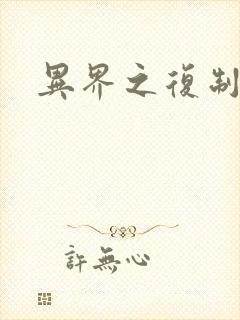 異界之復制
許無心